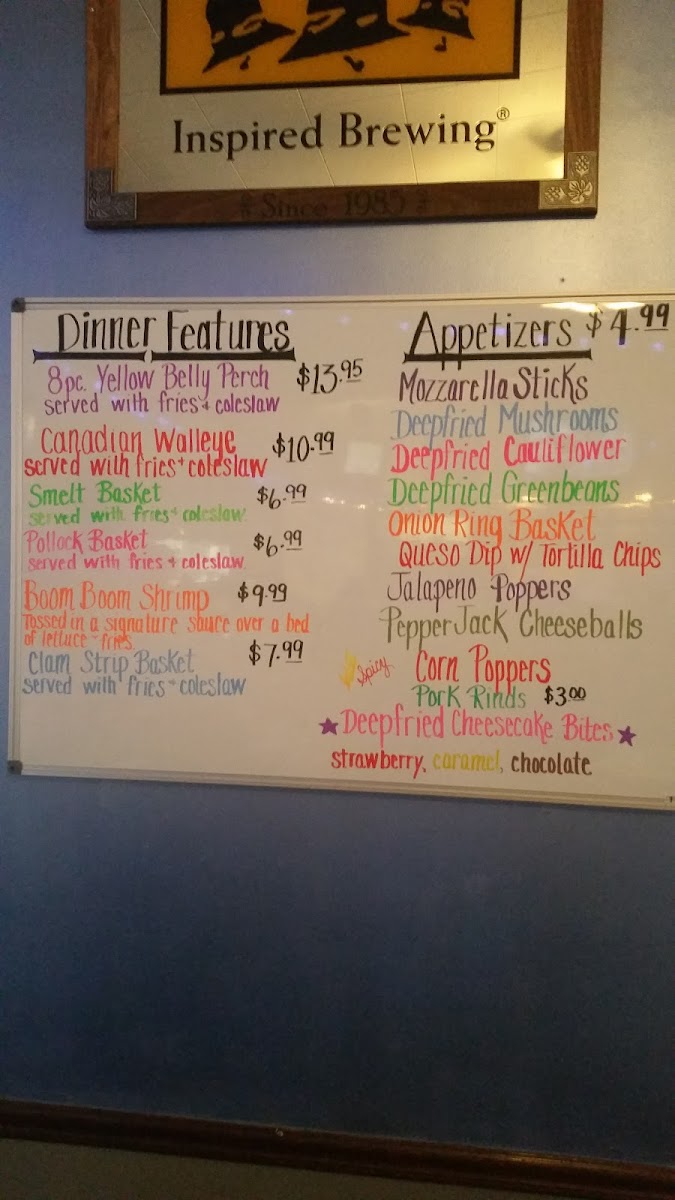 Inspired Brewing®
Since 1985
Dinner Features
8pc. Yellow Belly Perch $13.95
served with fries + coleslaw
Canadian Walleye $10.99
served with fries + coleslaw
Smelt Basket $6.99
served with fries + coleslaw
Pollock Basket $6.99
served with fries + coleslaw
Boom Boom Shrimp $9.99
Tossed in a signature sauce over a bed
of lettuce - fries
Clam Strip Basket $7.99
served with fries + coleslaw
Appetizers $4.99
Mozzarella Sticks
Deepfried Mushrooms
Deepfried Cauliflower
Deepfried Greenbeans
Onion Ring Basket
Queso Dip w/ Tortilla Chips
Jalapeno Poppers
PepperJack Cheeseballs
Spicy Corn Poppers
Pork Rinds $3.00
★Deepfried Cheesecake Bites★
strawberry, caramel, chocolate